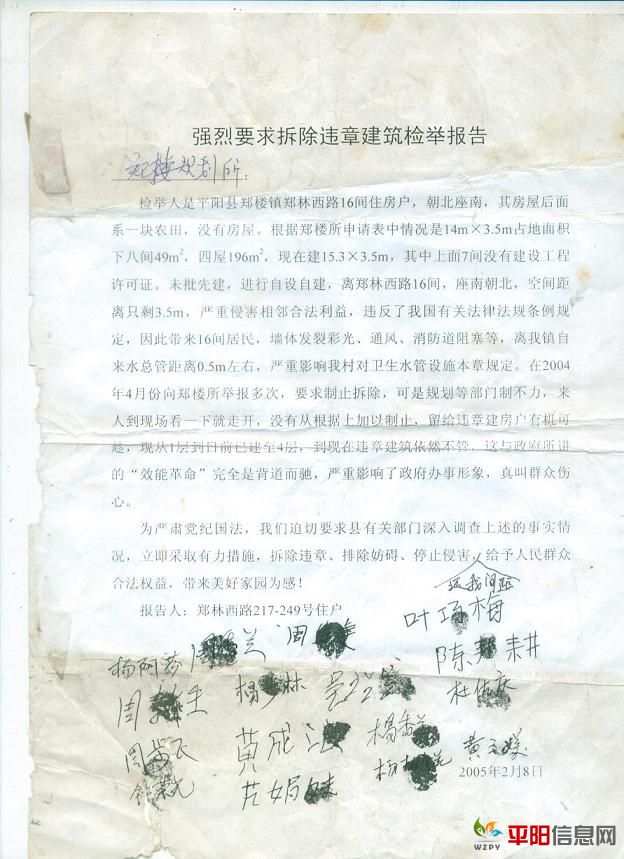 强烈要求拆除违章建筑检举报告
郑楼规划所：
检举人是平阳县郑楼镇郑林西路16间住房户，朝北座南，其房屋后面
系一块农田，没有房屋。根据郑楼所申请表中情况是14m×3.5m占地面积
下八间49m²，四屋196m²，现在建15.3×3.5m，其中上面7间没有建设工程
许可证。未批先建，进行自设自建，离郑林西路16间，座南朝北，空间距
离只剩3.5m，严重侵害相邻合法利益，违反了我国有关法律法规条例规
定，因此带来16间居民，墙体发裂彩光、通风、消防道阻塞等，离我镇自
来水总管距离0.5m左右，严重影响我村对卫生水管设施本章规定。在2004
年4月份向郑楼所举报多次，要求制止拆除，可是规划等部门制不力，来
人到现场看一下就走开，没有从根据上加以制止，留给违章建房户有机可
趁，现从1层到目前已建至4层，到现在违章建筑依然不管，这与政府所讲
的“效能革命”完全是背道而驰，严重影响了政府办事形象，真叫群众伤
心。
为严肃党纪国法，我们迫切要求县有关部门深入调查上述的事实情
况，立即采取有力措施，拆除违章、排除妨碍、停止侵害，给予人民群众
合法权益，带来美好家园为感！
报告人：郑林西路217-249号住户
叶 梅
陈 耕
周 兰 周
杨 林
周 生
黄成
杨香
黄
2005年2月8日
WZPY 平阳信息网